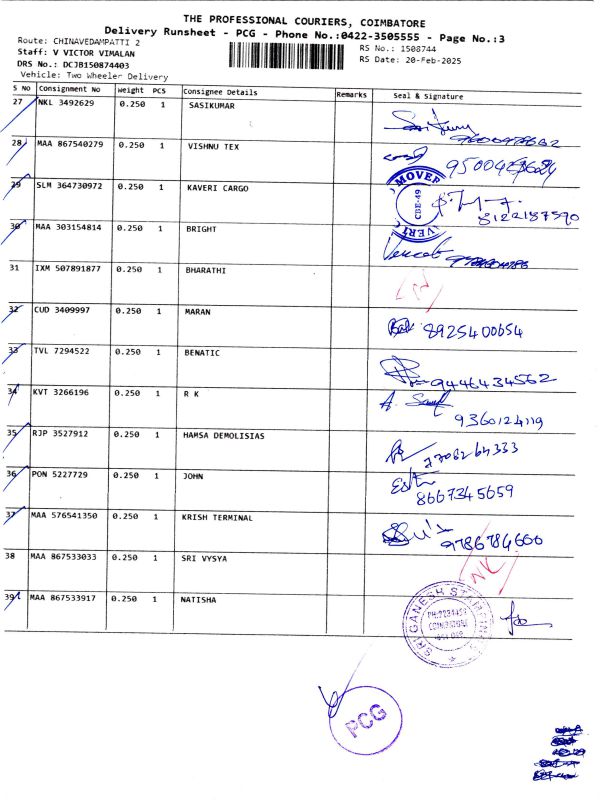 THE PROFESSIONAL COURIERS, COIMBATORE
Delivery Runsheet - PCG - Phone No.:0422-3505555 - Page No.:3
Route: CHINAVEDAMPATTI 2
Staff: V VICTOR VIMALAN
RS No.: 1508744
DRS No.: DCJB150874403
RS Date: 20-Feb-2025
Vehicle: Two Wheeler Delivery
S No Consignment No Weight PCS Consignee Details Remarks Seal & Signature
27 NKL 3492629 0.250 1 SASIKUMAR
28 MAA 867540279 0.250 1 VISHNU TEX
29 SLM 364730972 0.250 1 KAVERI CARGO 8122187590
MOVER
CBE-49
30 MAA 303154814 0.250 1 BRIGHT
31 IXM 507891877 0.250 1 BHARATHI
32 CUD 3409997 0.250 1 MARAN 8925400654
33 TVL 7294522 0.250 1 BENATIC 9446434562
34 KVT 3266196 0.250 1 R K 9360124119
35 RJP 3527912 0.250 1 HAMSA DEMOLISIAS
36 PON 5227729 0.250 1 JOHN 8667345659
37 MAA 576541350 0.250 1 KRISH TERMINAL 9786784600
38 MAA 867533033 0.250 1 SRI VYSYA NK
39 MAA 867533917 0.250 1 NATISHA
SRI GANESH STAMPING
COIMBATORE
PCG